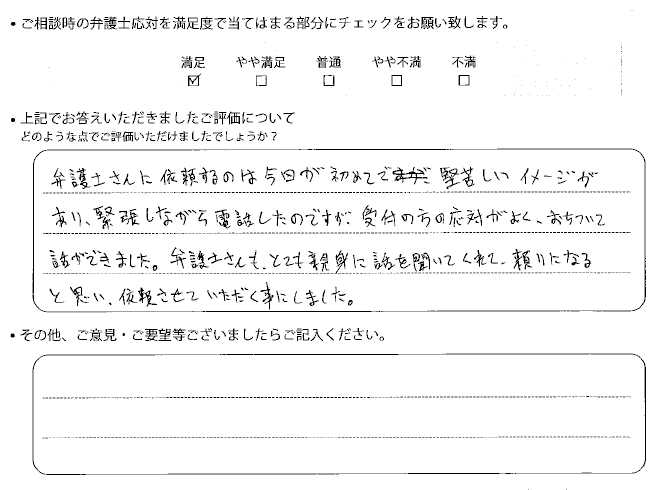 • ご相談時の弁護士応対を満足度で当てはまる部分にチェックをお願い致します。
満足 やや満足 普通 やや不満 不満
☑ ☐ ☐ ☐ ☐
• 上記でお答えいただきましたご評価について
どのような点でご評価いただけましたでしょうか？
弁護士さんに依頼するのは今回が初めてで 堅苦しい イメージが
あり、緊張しながら電話したのですが、受付の方の応対がよく、おちついて
話ができました。弁護士さんも、とても親身に話を聞いてくれて、頼りになる
と思い、依頼させていただく事にしました。
• その他、ご意見・ご要望等ございましたらご記入ください。